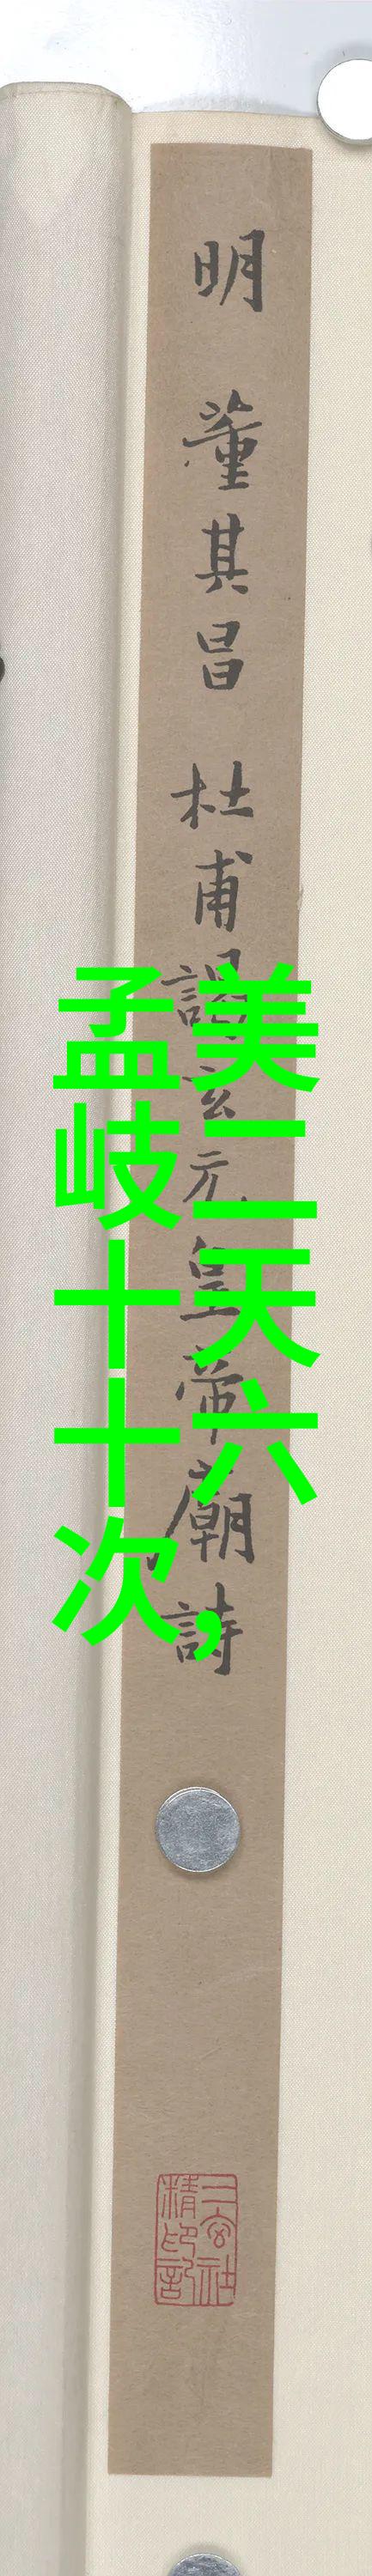 明 董其昌 杜甫謁玄元皇帝廟詩
孟美
岐二
十天
十六
次,
二玄社
精印記